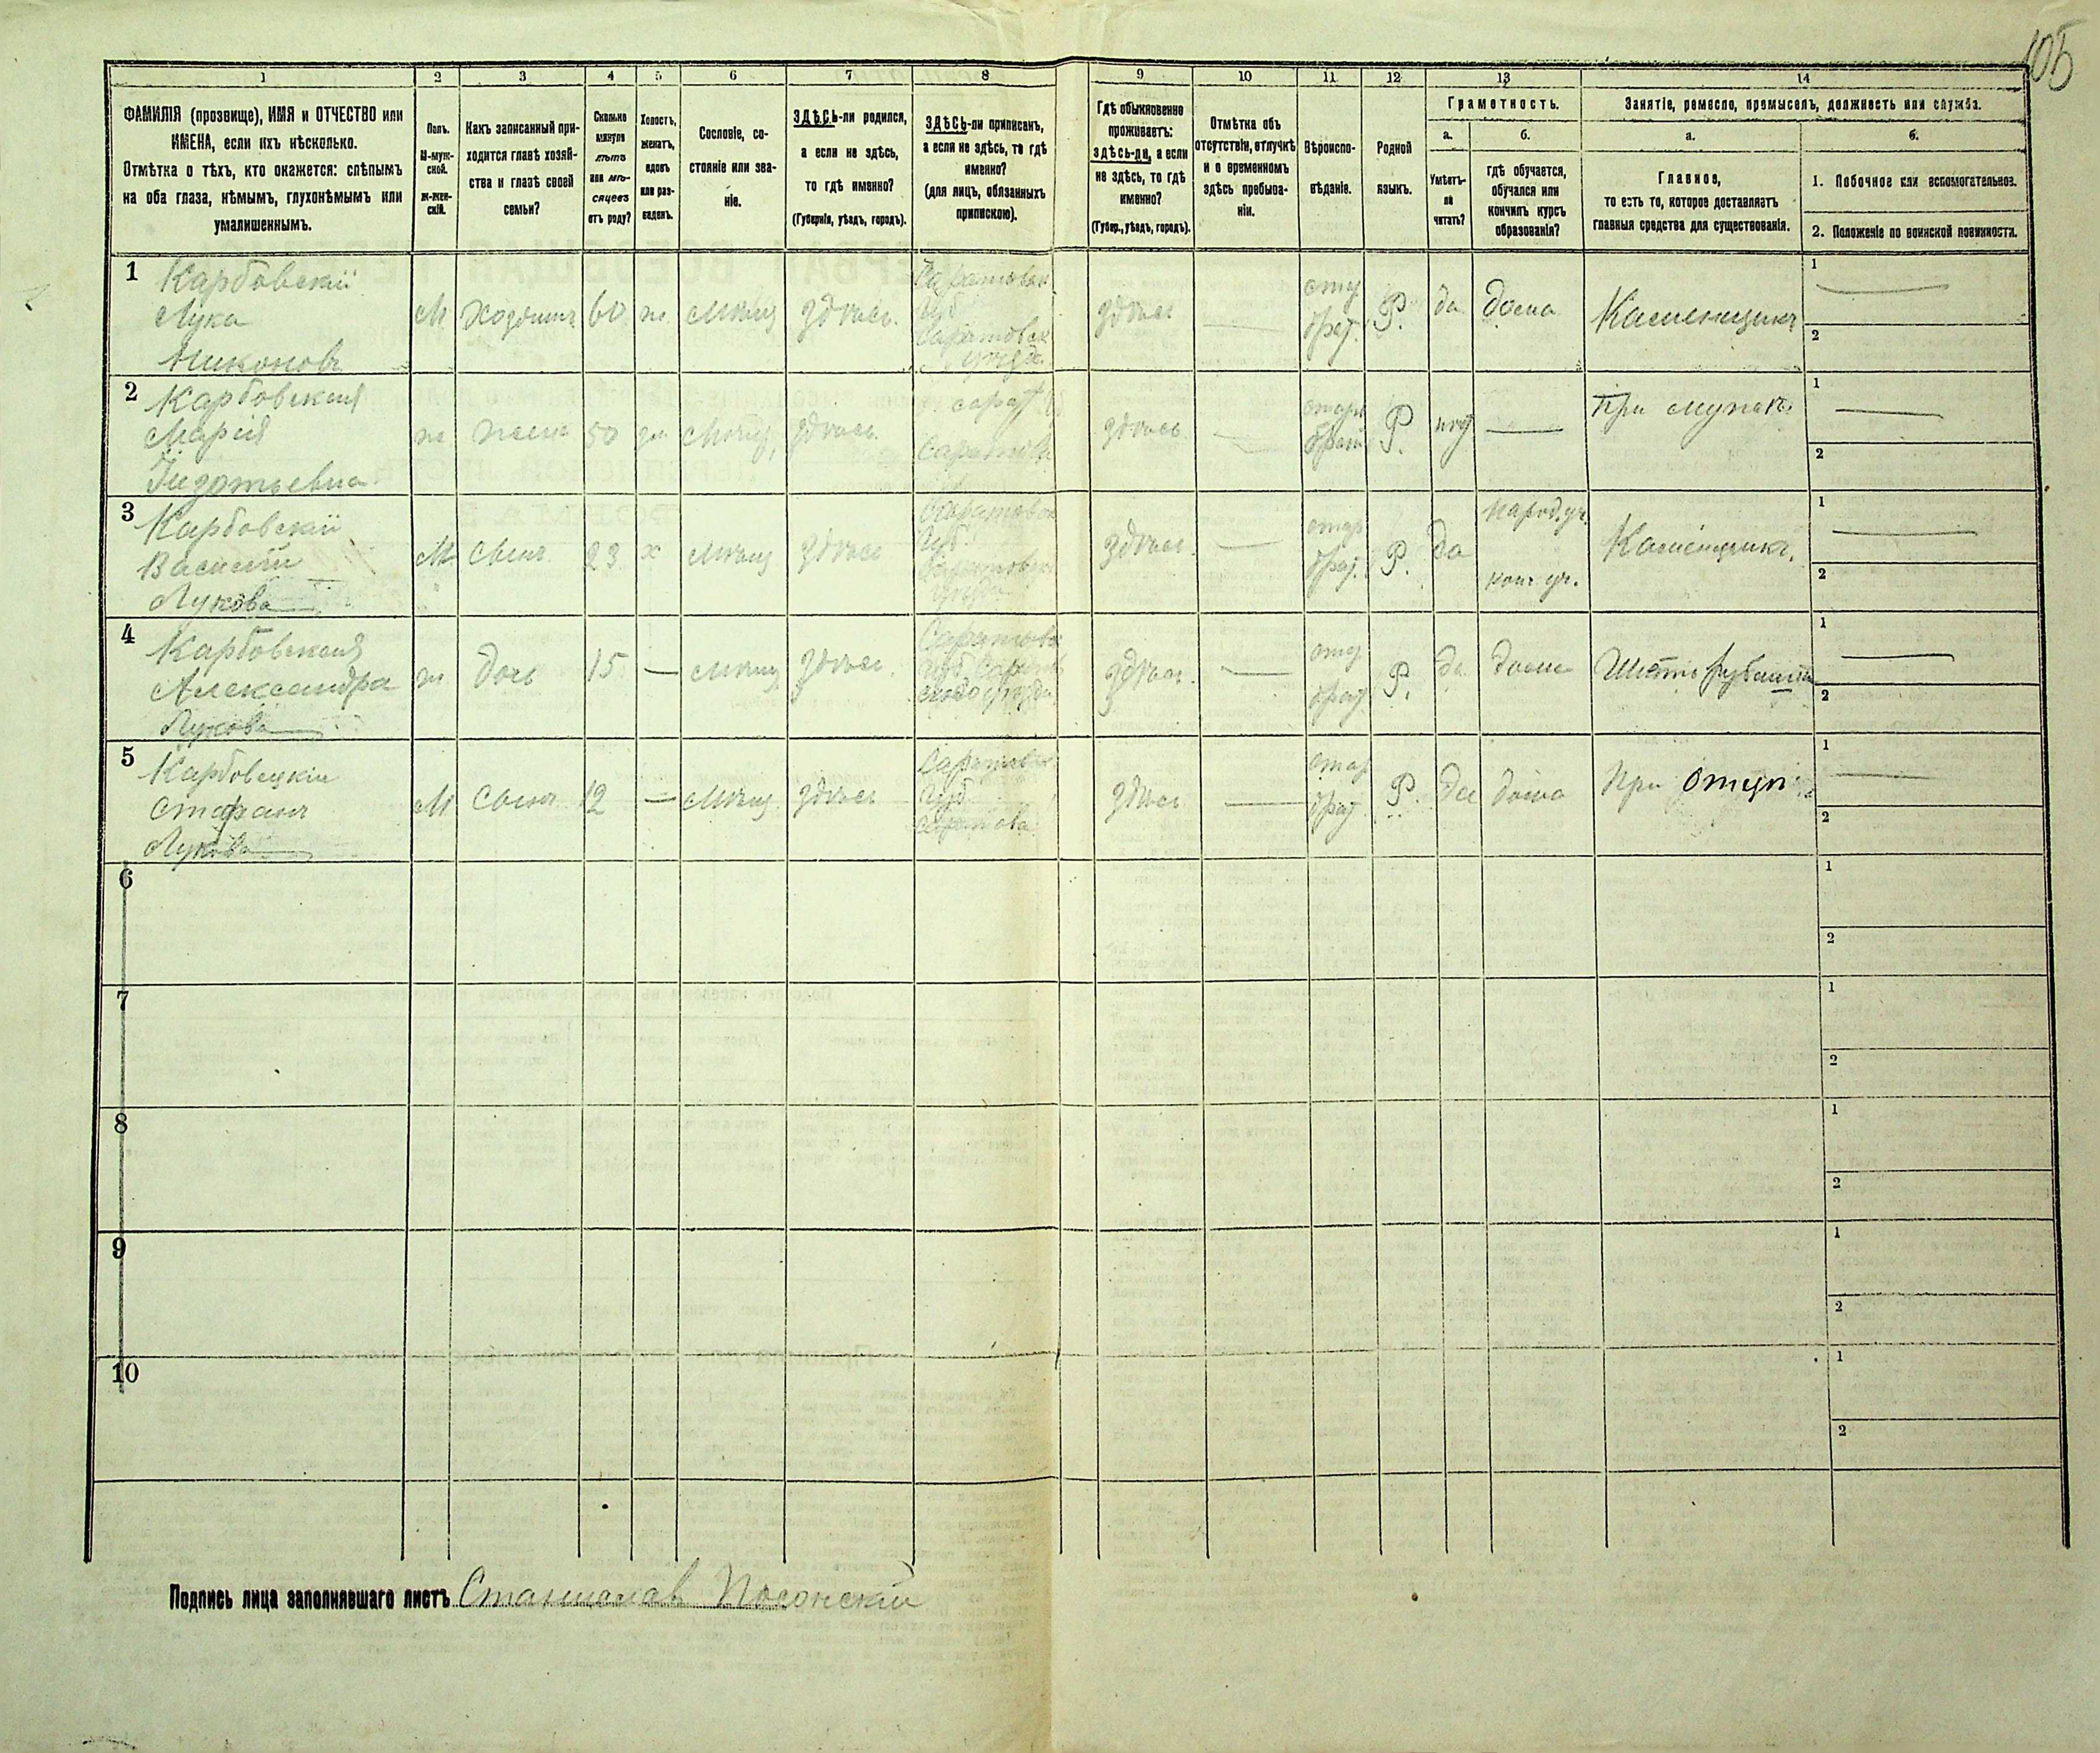 105
1 2 3 4 5 6 7 8 9 10 11 12 13 14
ФАМИЛІЯ (прозвище), ИМЯ и ОТЧЕСТВО или
ИМЕНА, если ихъ нѣсколько.
Отмѣтка о тѣхъ, кто окажется: слѣпымъ
на оба глаза, нѣмымъ, глухонѣмымъ или
умалишеннымъ.
Полъ.
М-муж-
ской.
ж-жен-
скій.
Какъ записанный при-
ходится главѣ хозяй-
ства и главѣ своей
семьи?
Сколько
минуло
лѣтъ
или мѣ-
сяцевъ
отъ роду?
Холостъ,
женатъ,
вдовъ
или раз-
веденъ.
Сословіе, со-
стояніе или зва-
ніе.
ЗДѢСЬ-ли родился,
а если не здѣсь,
то гдѣ именно?
(Губернія, уѣздъ, городъ).
ЗДѢСЬ-ли приписанъ,
а если не здѣсь, то гдѣ
именно?
(для лицъ, обязанныхъ
припискою).
Гдѣ обыкновенно
проживаетъ:
здѣсь-ли, а если
не здѣсь, то гдѣ
именно?
(Губер., уѣздъ, городъ).
Отмѣтка объ
отсутствіи, отлучкѣ
и о временномъ
здѣсь пребыва-
ніи.
Вѣроиспо-
вѣданіе.
Родной
языкъ.
Грамотность.
а.
Умѣетъ-
ли
читать?
б.
гдѣ обучается,
обучался или
кончилъ курсъ
образованія?
Занятіе, ремесло, промыселъ, должность или служба.
а.
Главное,
то есть то, которое доставляетъ
главныя средства для существованія.
б.
1. Побочное или вспомогательное.
2. Положеніе по воинской повинности.
1
Карбовскій
Лука
Никоновъ
М Хозяинъ 60 ж мѣщ здѣсь.
Саратовск
губ
Саратовск
уѣзда
здѣсь
Р. да дома Каменщикъ
1
2
2
Карбовская
Марія
ж жена 50 мѣщ, здѣсь.
сарат
Саратов
здѣсь Р. нѣт при мужѣ
1
2
3
Карбовскій
Василій
Лукова
М сынъ 23 х мѣщ здѣсь
Саратовск
губ
здѣсь. Р. да
народ. уч.
конч уч.
Каменщикъ.
1
2
4
Карбовская
Александра
Лукова
ж дочь 15 мѣщ здѣсь
Саратовск
здѣсь. Р. да дома Шить рубашки
1
2
5
Карбовецкій
Стефанъ
Лукова
М сынъ 12 мѣщ. здѣсь
Саратовск
губ
здѣсь Р. да дома При отцѣ
1
2
6
1
2
7
1
2
8
1
2
9
1
2
10
1
2
Подпись лица заполнявшаго листъ Станиславъ